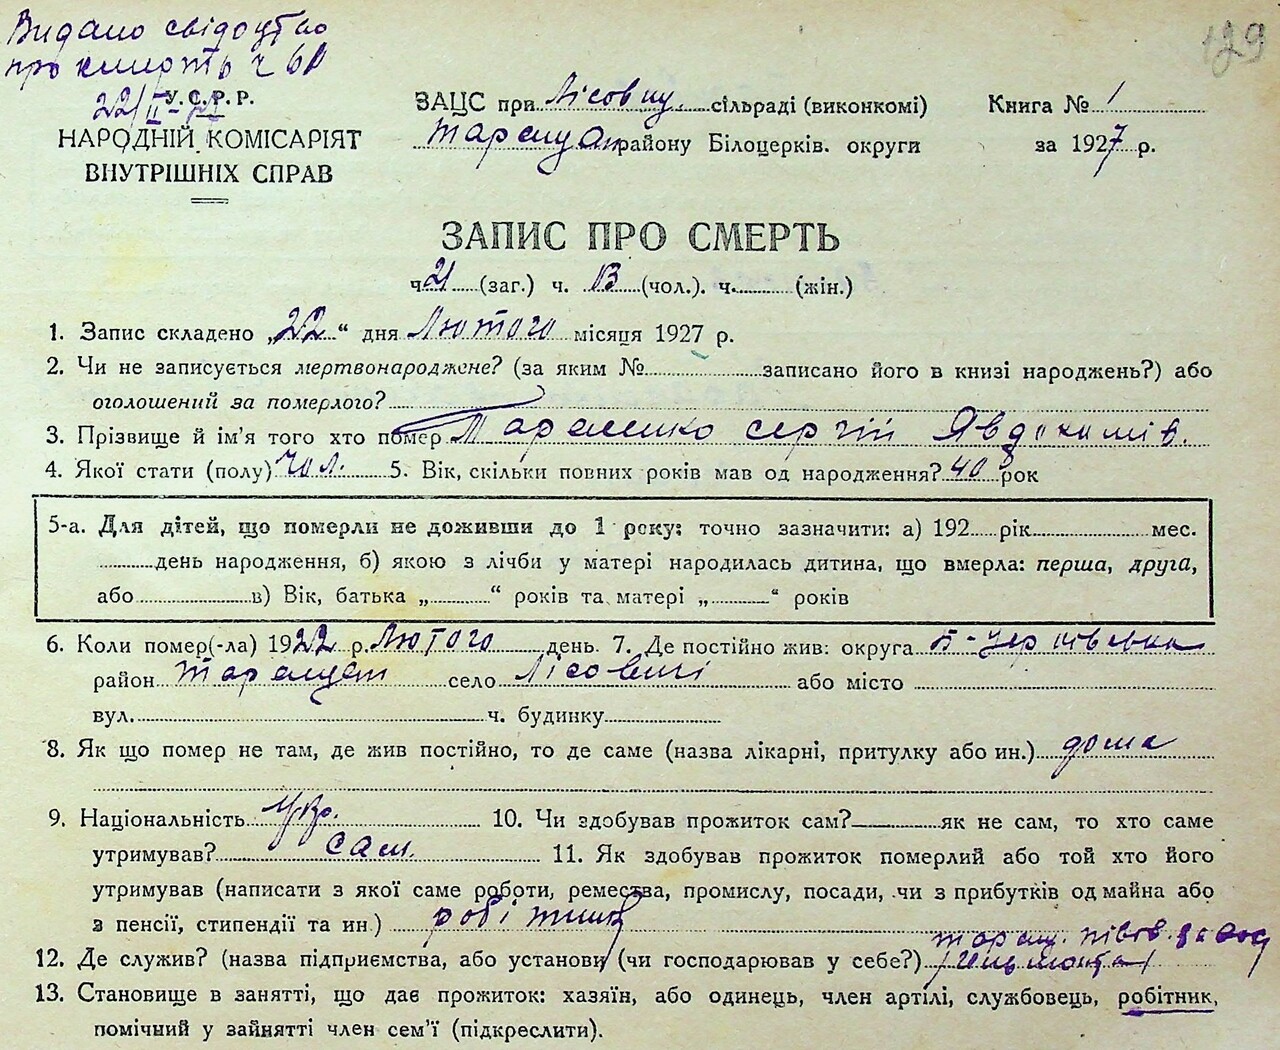 Видано свідоцтво
про смерть ч
129
22/II
У.С.Р.Р.
НАРОДНІЙ КОМІСАРІЯТ
ВНУТРІШНІХ СПРАВ
ЗАЦС при Лісовиц. сільраді (виконкомі)
Таращан району Білоцерків. округи
Книга № 1
за 1927 р.
ЗАПИС ПРО СМЕРТЬ
ч 21 (заг.) ч. 13 (чол.). ч. (жін.)
1. Запис складено „22“ дня Лютого місяця 1927 р.
2. Чи не записується мертвонароджене? (за яким № записано його в книзі народжень?) або
оголошений за померлого?
3. Прізвище й ім'я того хто помер Тараненко Сергій Явдокимів.
4. Якої стати (полу) чол. 5. Вік, скільки повних років мав од народження? 40 рок
5-а. Для дітей, що померли не доживши до 1 року: точно зазначити: а) 192 рік мес.
день народження, б) якою з лічби у матері народилась дитина, що вмерла: перша, друга,
або в) Вік, батька „ “ років та матері „ “ років
6. Коли помер(-ла) 1922 р. Лютого день. 7. Де постійно жив: округа Б-Церківська
район Таращан село Лісовичі або місто
вул. ч. будинку
8. Як що помер не там, де жив постійно, то де саме (назва лікарні, притулку або ин.) дома
9. Національність Укр. 10. Чи здобував прожиток сам? як не сам, то хто саме
утримував? сам. 11. Як здобував прожиток померлий або той хто його
утримував (написати з якої саме роботи, ремества, промислу, посади, чи з прибутків од майна або
з пенсії, стипендії та ин.) робітник
Таращ. півов. завод
12. Де служив? (назва підприємства, або установи (чи господарював у себе?)
13. Становище в занятті, що дає прожиток: хазяїн, або одинець, член артілі, службовець, робітник,
помічний у зайнятті член сем'ї (підкреслити).